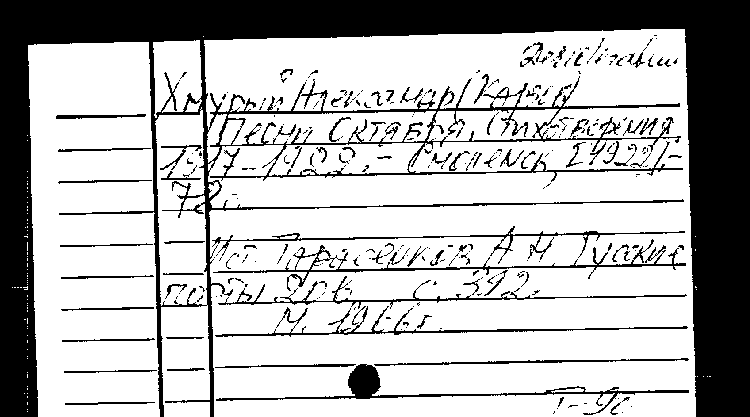 Хмурый Александр (Карев)
Песни Октября. Стихотворения
1917-1922.- Смоленск, [1922].-
78с.
Ист. Тарасенков А.Н. Русские
поэты 20в. с. 392.
М. 1966г.
Т-90